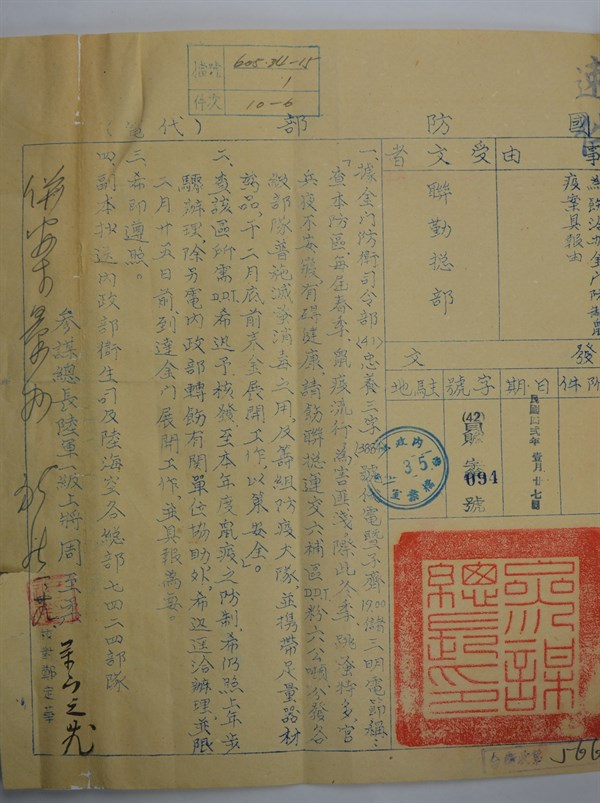 605.34-15
1
件次
10-6
國防部（代電）
事由
疫業具報由
受文者
聯勤總部
發文
附件
日期
民國四二年壹月廿七日
字號
(42)
094號
駐地
一、據金门防衛司令部(41)忠養三字
號代電暨子齊1900儲三明電節稱：
「查本防區每屆春季，鼠疫流行為害匪淺際此冬季，跳蚤特多，官
兵寢不安寢有碍健康請飭聯總運交六補區D.D.T.粉六公噸分發各
級部隊普施滅蚤消毒之用，及籌組防疫大隊並携帶足量器材
藥品，于二月底前来金展開工作，以策安全」。
二、查該區所需D.D.T.希迅予核發至本年度鼠疫之防制，希仍照上年步
驟辦理，除另電內政部轉飭有関單位協助外，希迅逕洽辦理，並限
二月廿五日前，到達金门展開工作，並具報為要。
三、希即遵照。
四、副本抄送內政部衛生司及陸海空各總部七四二四部隊
參謀總長陸軍一級上將周至柔
內政部
3.5
566